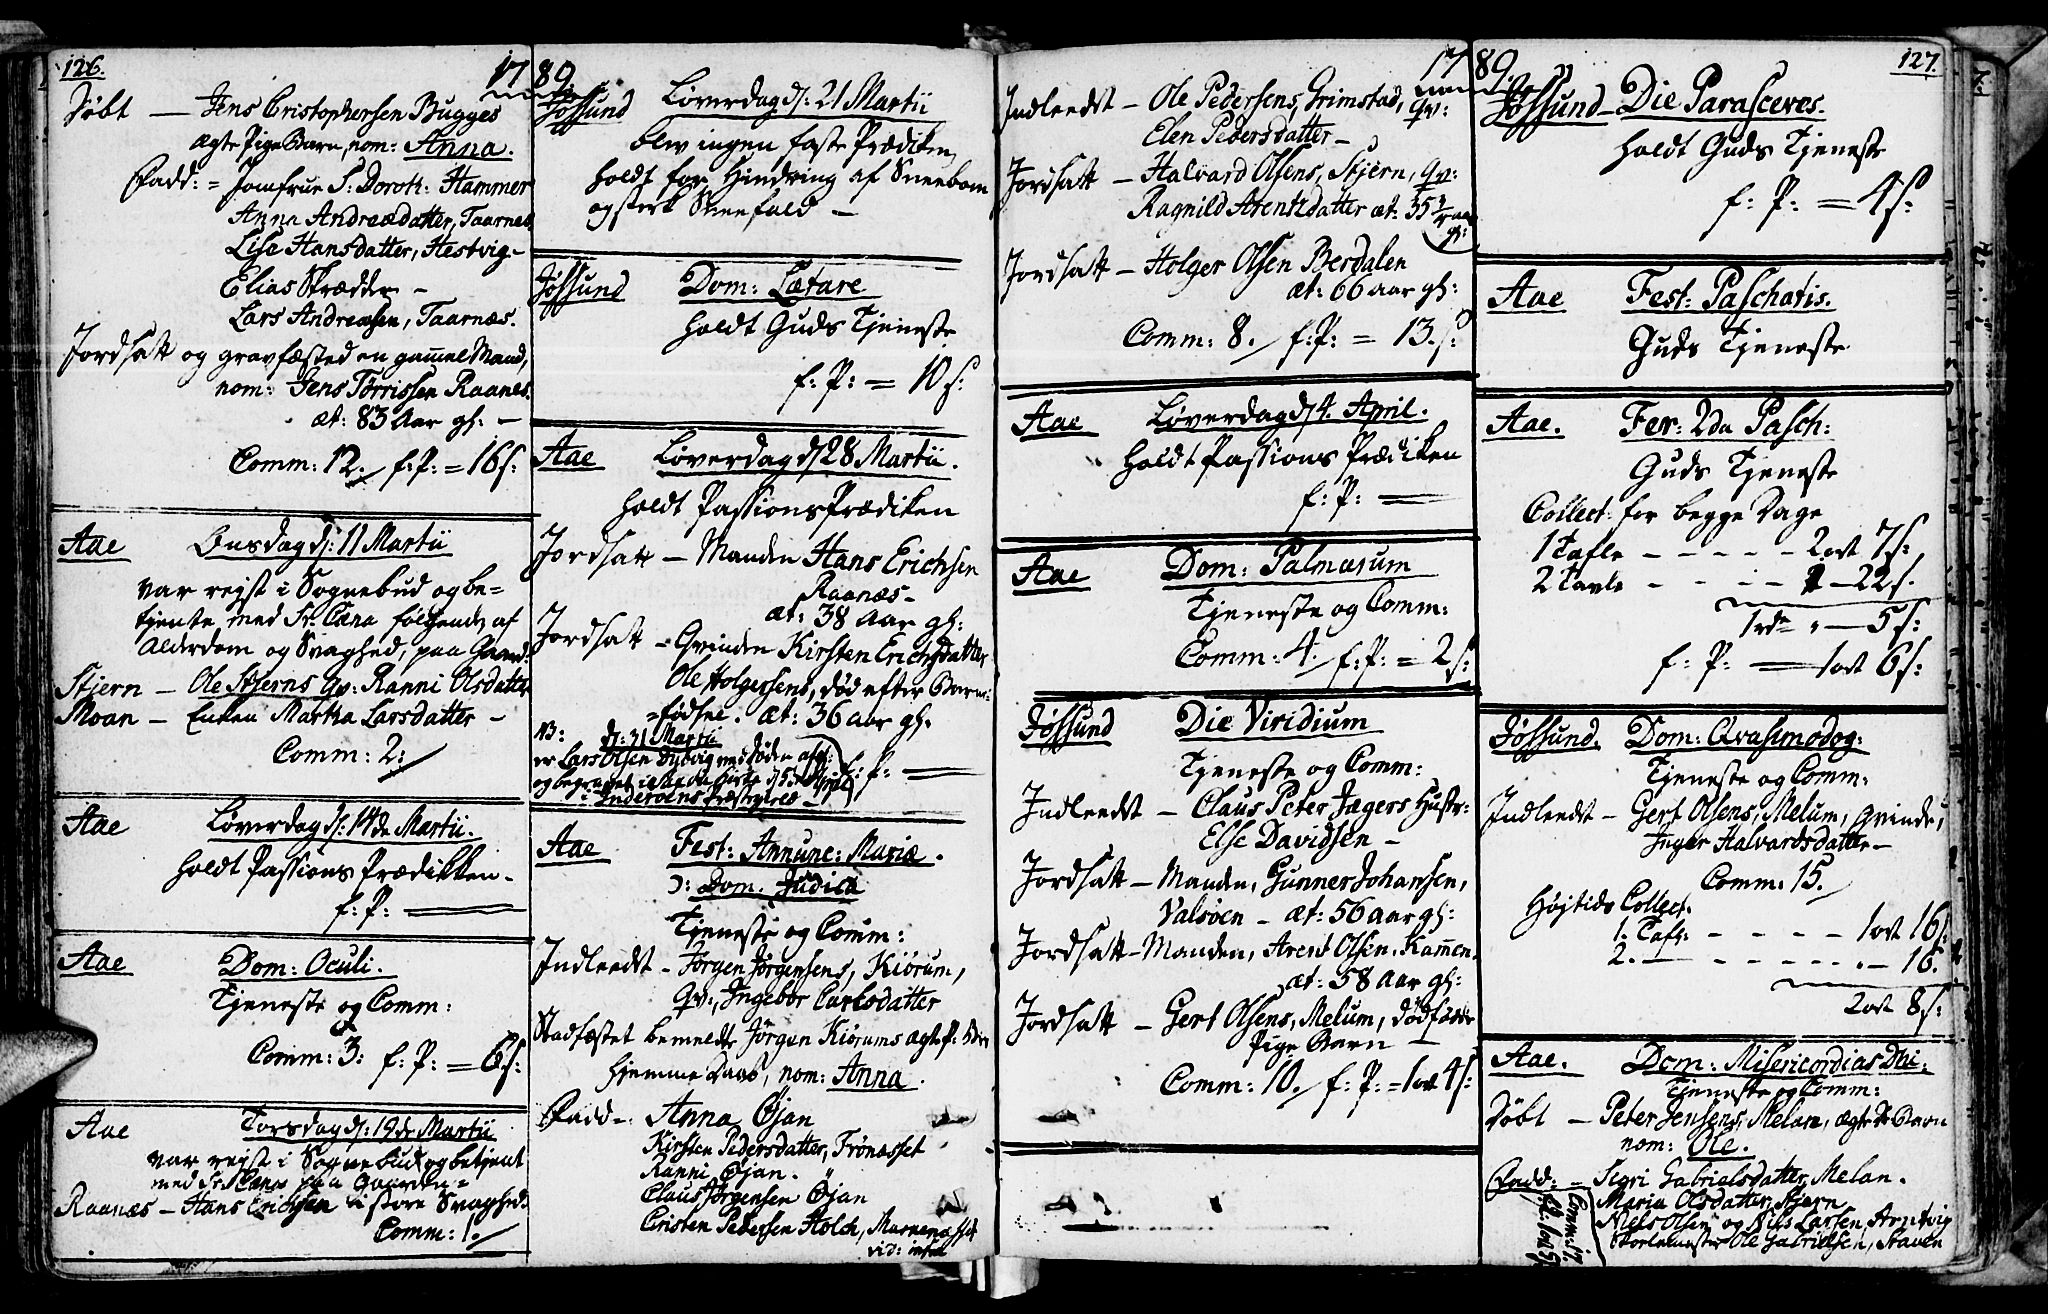 126.
1789.
Døbt — Jens Cristophersen Bugges
ægte Pige Barn, nom: Anna.
Fadd: = Jomfrue S: Doroth: Hammer
Anna Andreædatter, Taarnes
Lise Hansdatter, Hestvig –
Elias Skrædder –
Lars Andreasen, Taarnæs.
Jordsatt og gravfæsted en gam̄el Mand,
nom: Jens Tørrissen Raanes.
æt: 83 Aar gl: –
Comm: 12. f: P: = 16 s:
Aae Onsdag d: 11 Martii
var rejst i Sognebud og be=
tjente med Sr: Cæna følgende af
Alderdom og Svaghed, paa Gaard:
Stjern – Ole Stjerns Qv: Ranni Olsdatter
Moan – Enken Martha Larsdatter –
Comm: 2:
Aae Løverdag d: 14de Martii.
holdt Passions Prædikken –
f: P: —
Aae Dom: Oculi.
Tjeneste og Comm:
Comm: 3: f: P: = 6 s:
Aae Torsdag d: 19de Martii
var rejst i Sognebud og betjent
med Sr: Cæna paa Gaarden =
Raanæs – Hans Erichsen i store Svaghed:
Comm: 1.
Jøssund Løverdag d: 21 Martii
blev ingen faste Prædiken
holdt for Hindring af Sneebom
og sterk Sneefald –
Jøssund Dom: Lætare
holdt Guds Tjeneste
f: P: = 10 s:
Aae Løverdag d 28 Martii.
holdt Passions Prædiken
Jordsatt – Manden Hans Erichsen
Raanæs –
æt: 38 Aar gl:
Jordsatt – Qvinden Kirsten Erichsdatter
Ole Holgersens, død efter Barn:
=fødsel. æt: 36 aar gl.
NB: d: 31 Martii
er Lars Olsen Dybvig ved døden afg:
og begravet d 5te April
i Inderøens Præstegield –
f: P: —
Aae Fest: Annunc: Mariæ.
ɔ: Dom. Judica
Tjeneste og Comm:
Indleedt – Jørgen Jørgensens, Kiørum,
Qv:, Ingebor Carlsdatter
Stadfæstet bemeldte Jørgen Kiørums ægte P: Barn
hjemme Daab, nom: Anna.
Fadd – Anna Øjan
Kirsten Pedersdatter, Frønæsset
Ranni Øjan.
Claus Jørgensen Øjan
Cristen Pedersen Holck, Marenæsset
vid: infra
1789.
127.
Indleedt – Ole Pedersens, Grimstad, Qv:
Elen Pedersdatter –
Jordsatt – Halvard Olsens, Stjern, Qv:
Ragnild Arentzdatter æt: 35 aar
gl:
Jordsatt – Holger Olsen Berdalen
æt: 66 aar gl:
Comm: 8. f: P: = 13. s:
Aae Løverdag d 4. April.
holdt Passions Prædiken
f: P: —
Aae Dom: Palmarum
Tjeneste og Comm:
Comm: 4. f: P: = 2 s:
Jøssund Die Viridium
Tjeneste og Comm:
Indleedt – Claus Peter Jægers Hustr:
Else Davidsen –
Jordsatt – Manden, Gunner Johansen,
Valsøen – æt: 56 aar gl:
Jordsatt – Manden, Arent Olsen, Kam̄en.
æt: 58 Aar gl:
Jordsatt – Gert Olsens, Melum, dødfødde
Pige Barn –
Comm: 10. f: P: = 1 ort 4 s:
Jøssund – Die Parasceves.
holdt Guds Tjeneste
f: P: = 4 s:
Aae Fest: Paschatis.
Guds Tjeneste
Aae. Fer: 2da Pasch:
Guds Tjeneste
Collect: for begge Dage
1 Tafle – – – – – 2 ort 7 s:
2 Tavle – – – – 22 s.
1 rdr „ — 5 s:
f: P: — 1 ort 6 s:
Jøssund. Dom: Qvasimodog:
Tjeneste og Comm:
Indleedt – Gert Olsens, Melum, Qvinde,
Inger Halvardsdatter –
Comm: 15.
Højtids Collect:
1. Tafl: – – – – 1 ort 16 s:
2. — – – – – – „ – 16.
2 ort 8 s:
Aae. Dom: Misericordias Dni:
Tjeneste og Comm:
Døbt – Peter Jensens, Melan, ægte Dr: Barn
nom: Ole.
Fadd: – Sigri Gabrielsdatter, Melan.
Maria Olsdatter, Stjern
Niels Olsen og Nils Larsen, Arntvig
Skolemester Ole Gabrielsen, Staven
Comm: 17.